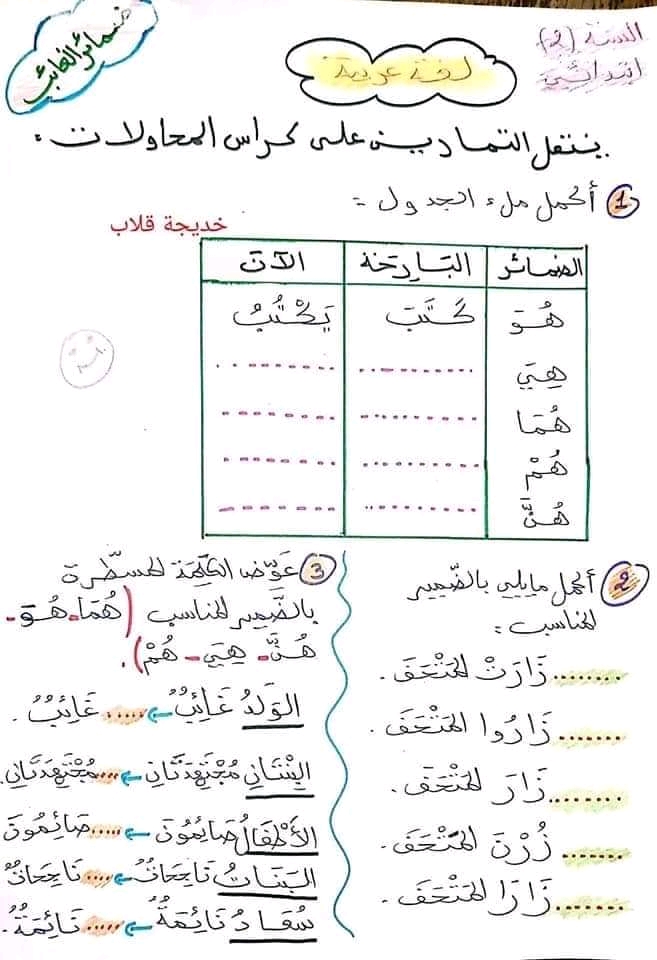 السنة (2)
ابتدائي
ضمائر الغائب
لغة عربية
ينتقل التمارين على كراس المحاولات:
1 أكمل ملء الجدول:
خديجة قلاب
الضمائر البَارِحَة الآنَ
هُوَ كَتَبَ يَكْتُبُ
هِيَ ........ ........
هُمَا ........ ........
هُمْ ........ ........
هُنَّ ........ ........
2 أكمل مايلي بالضّمير
المناسب:
........ زَارَتْ المَتْحَفَ.
........ زَارُوا المَتْحَفَ.
........ زَارَ المَتْحَفَ.
........ زُرْنَ المَتْحَفَ.
........ زَارَا المَتْحَفَ.
3 عَوِّض الكَلِمَة المسطّرة
بالضَّمِير المناسب (هُمَا - هُوَ -
هُنَّ - هِيَ - هُمْ).
الوَلَدُ غَائِبٌ ← ..... غَائِبٌ.
البِنْتَانِ مُجْتَهِدَتَانِ ← ..... مُجْتَهِدَتَانِ.
الأَطْفَالُ صَائِمُونَ ← ..... صَائِمُونَ
البَنَاتُ نَاجِحَاتٌ ← ..... نَاجِحَاتٌ
سُعَادُ نَائِمَةٌ ← ..... نَائِمَةٌ.